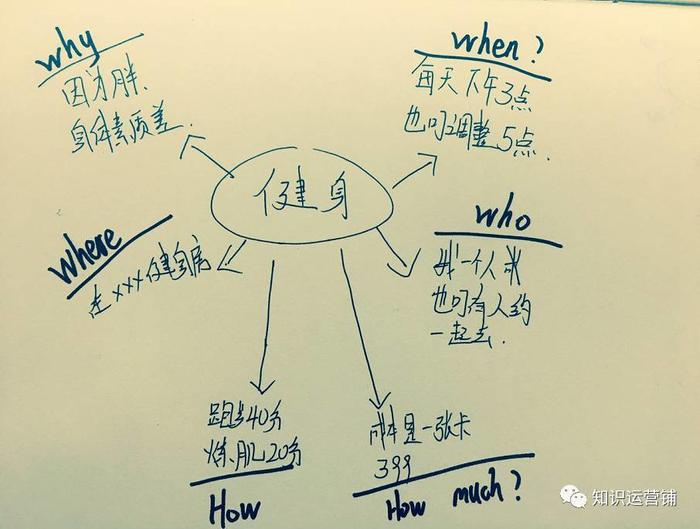 why
因为胖、
身体素质差.
when?
每天下午3点
也可调整5点.
健身
where
在xxx健身房
who
一个人
也可有人约
一起去.
跑步40分
炼肌20分
How
成本是一张卡
399
How much?
知识运营铺